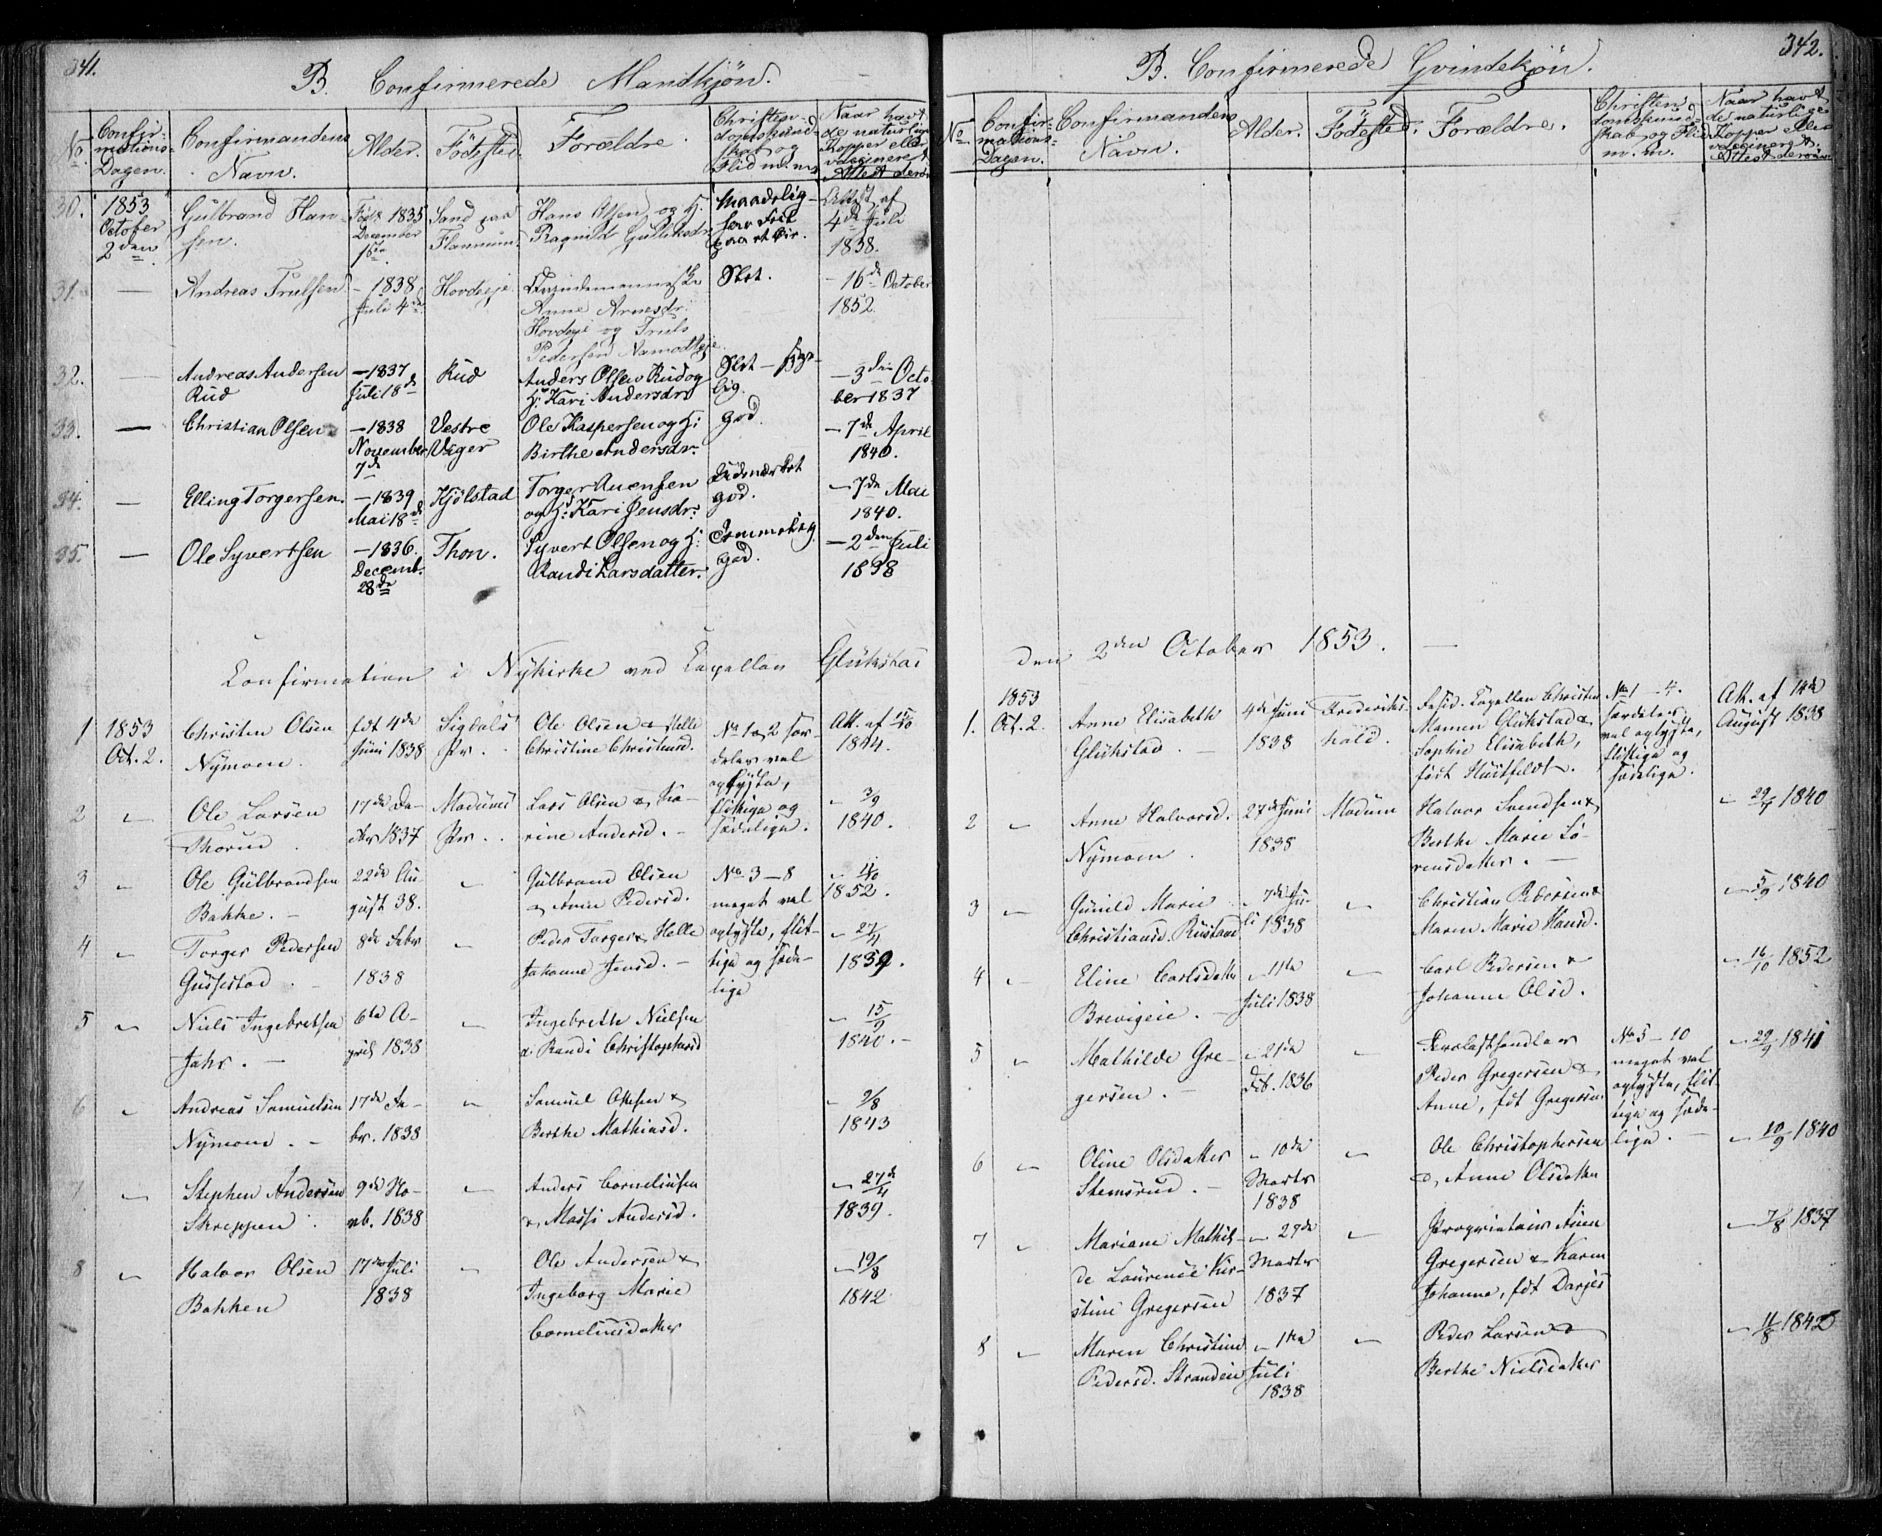 341.
B. Confirmerede Mandkjøn.
No.
Confir-
mations-
Dagen.
Confirmandens
Navn.
Alder.
Fødested.
Forældre.
Christen-
domskund-
skab og
Flid m.m.
Naar havt
de naturlige
Kopper eller
vaccineret.
Attest derom
30.
1853
October
2den.
Gulbrand Han-
sen.
Født 1835
December
Sand paa
Hans Olsen og H.
Ragnild Gulliksdr.
maadelig
Attest af
4de Juli
1838.
31. —
Andreas Trulsen
- 1838
Juli 4de
Hovdeje
Anne Arnesdr.
Hovdeje og Truls
Pedersen
Slet.
- 16de October
1852.
32. —
Andreas Andersen
Rud
- 1837
Juli 18de
Rud
Anders Olsen Rud og
H: Kari Andersdr.
Slet -
lig.
- 3die Octo-
ber 1837
33. —
Christian Olsen
- 1838
November
7de
Vestre
Viger
Ole Kaspersen og H:
Birthe Andersdr.
god.
- 7de April
1840.
34. —
Elling Torgersen.
- 1839
Mai 18de
Kjølstad
Torger Auensen
og H: Kari Jensdr.
Udmærket
god.
- 7de Mai
1840.
35. —
Ole Syvertsen
- 1836.
Decemb.
28de
Thon.
Syvert Olsen og H:
Randi Larsdatter.
Temmelig
god.
- 2den Juli
1838
Confirmation i Nykirke ved Capellan Glükstad
1
1853
Oct. 2.
Christen Olsen
Nymoen.
fdt 4de
Juni 1838
Sigdals
Pr.
Ole Olsen & Helle
Christine Christensd.
No 1 & 2 sær-
deles vel
oplyste,
flittige og
sædelige.
Att. af 15/10
1844.
2 "
Ole Larsen
Thorud.
17de De-
cbr 1837
Modums
Pr.
Lars Olsen & Ka-
rine Andersd. -
" 3/9
1840.
3 "
Ole Gulbrandsen
Bakke. -
22de Au
gust 38.
"
Gulbrand Olsen
& Anne Pedersd.
No 3 - 8
meget vel
oplyste, flit-
tige og sæde-
lige
" 11/10
1852.
4 "
Torger Pedersen
Gussestad.
8de Febr
1838
"
Peder Torgers. & Helle
Johanne Jensd. -
" 27/4
1839.
5 "
Niels Ingebretsen
Jahr. -
6te A-
pril 1838
"
Ingebreth Nielsen
& Randi Christophersd
" 15/9
1840. -
6 "
Andreas Samuelsen
Nymoen. -
17de Fe-
br. 1838
"
Samuel Olsen &
Berthe Mathiesd.
" 9/8
1843
7 "
Stephen Andersen
Skreppen.
9de No-
vb. 1838
"
Anders Corneliusen
& Massi Andersd.
" 27/4
1839.
8 "
Halvor Olsen
Bakken
17de Juli
1838
"
Ole Andersen &
Ingeborg Marie
Corneliusdatter
" 19/8
1842
342.
B. Confirmerede Qvindekjøn.
No
Confir-
mations-
Dagen.
Confirmandens
Navn.
Alder.
Fødested.
Forældre.
Christen
domskund-
skab og Flid
m. m.
Naar havt
de naturlige
Kopper eller
vaccineret.
Attest derom
den 2den October 1853. —
1.
1853
Oct. 2.
Anne Elisabeth
Glükstad. -
4de Juni
1838
Frederiks-
hald.
Resid. Capellan Christen
Mamen Glükstad &
Sophie Elisabeth,
født Huitfeldt.
No 1 - 4.
særdeles
vel oplyste,
flittige og
sædelige.
Att. af 14de
August 1838
2 "
Anne Halvorsd.
Nymoen.
27de Juni
1838
Modum
Halvor Svendsen &
Berthe Marie Lo-
rensdatter. -
" 29/7 1840
3 "
Gunild Marie
Christiansd. Rustand
" 7de Ju-
li 1838
"
Christian Pedersen &
Maren Marie Hansd.
" 5/9 1840
4 "
Eline Carlsdatter
Brevigeie. -
" 11te
Juli 1838
"
Carl Pedersen &
Johanne Olsd.
" 16/10 1852
5 "
Mathilde Gre-
gersen. -
" 21de
Dcb. 1836
"
Trælasthandler
Peder Gregersen &
Anne, fdt Gregersen
No 5 - 10
meget vel
oplyste, flit-
tige og sæde-
lige. -
" 29/9 1841
6 "
Oline Olsdatter
Stensrud. -
" 10de
Marts
1838
"
Ole Christophersen
& Anne Olsdatter
" 10/9 1840
7 "
Mariane Mathil-
de Laurence Kir-
stine Gregersen
" 29de
Marts
1837
"
Proprietair Auen
Gregersen & Karen
Johanne, fdt Darjes
" 7/8 1837
8 "
Maren Christine
Pedersd. Strandeie
" 1te
Juli
1838
"
Peder Larsen &
Berthe Nielsdatter
" 11/8 1842